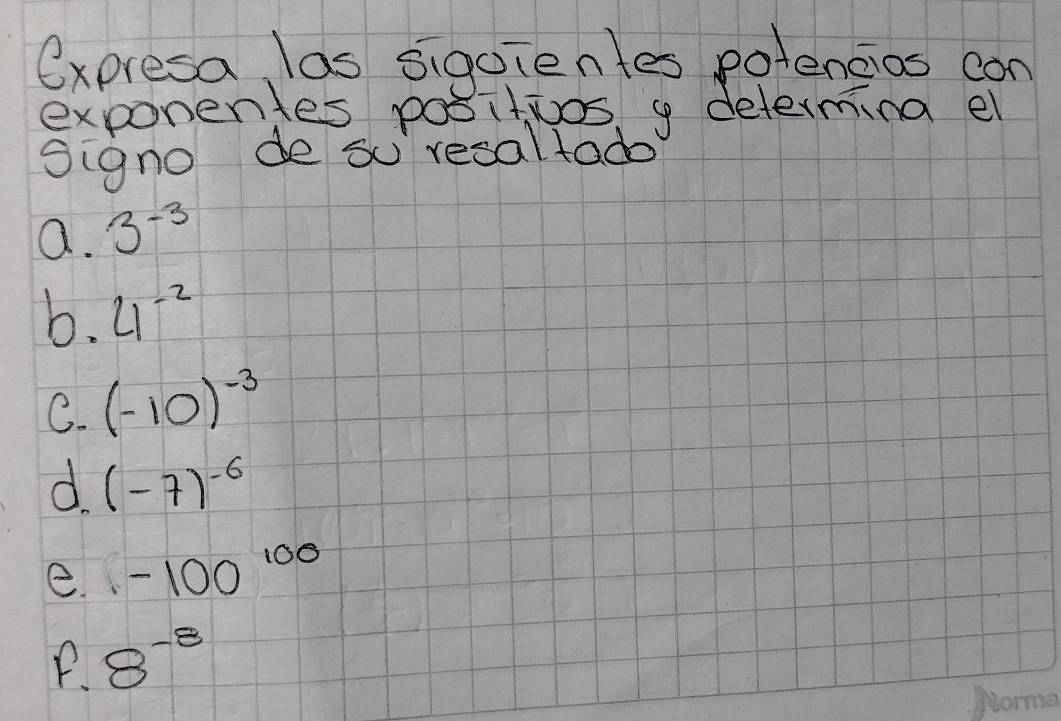 Expresa las siguientes potencias con
exponentes positivos y determina el
signo de su resultado
a. 3^-3
b. 4^-2
c. (-10)^-3
d. (-7)^-6
e. -100^100
f. 8^-8
Norma